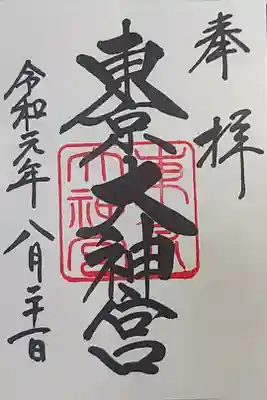 奉拝
東京大神宮
東京
大神宮
令和元年八月二十一日